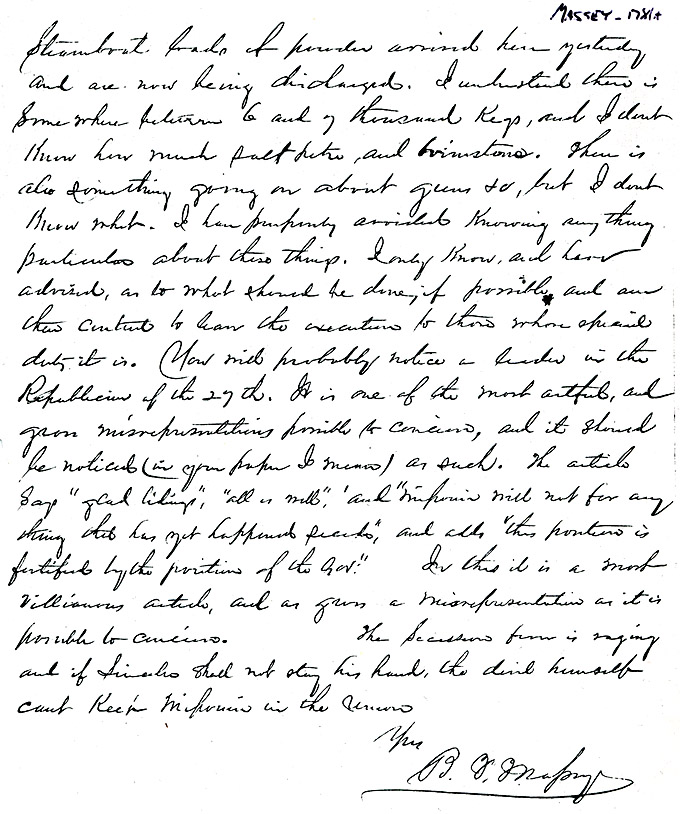 MASSEY - 1781+
Steamboat loads of powder arrived here yesterday
and are now being discharged. I understand there is
some where between 6 and 7 thousand Kegs, and I dont
Know how much salt petre, and brimstone. There is
also something going on about guns &c, but I dont
Know what. I have purposely avoided Knowing any thing
particular about these things. I only Know, and have
advised, as to what should be done, if possible, and am
then content to leave the execution to those whose special
duty it is. You will probably notice a leader in the
Republican of the 27th. It is one of the most artful, and
gross misrepresentations possible to conceive, and it should
be noticed (in your paper I mean) as such. The article
says "glad tidings", "all is well", and "Missouri will not for any
thing that has yet happened secede", and adds "this position is
fortified by the position of the Gov." In this it is a most
villianous article, and as gross a misrepresentation as it is
possible to conceive. The Secession fever is raging
and if Lincoln shall not stay his hand, the devil himself
cant Keep Missouri in the Union
Yrs
B. F. Massey